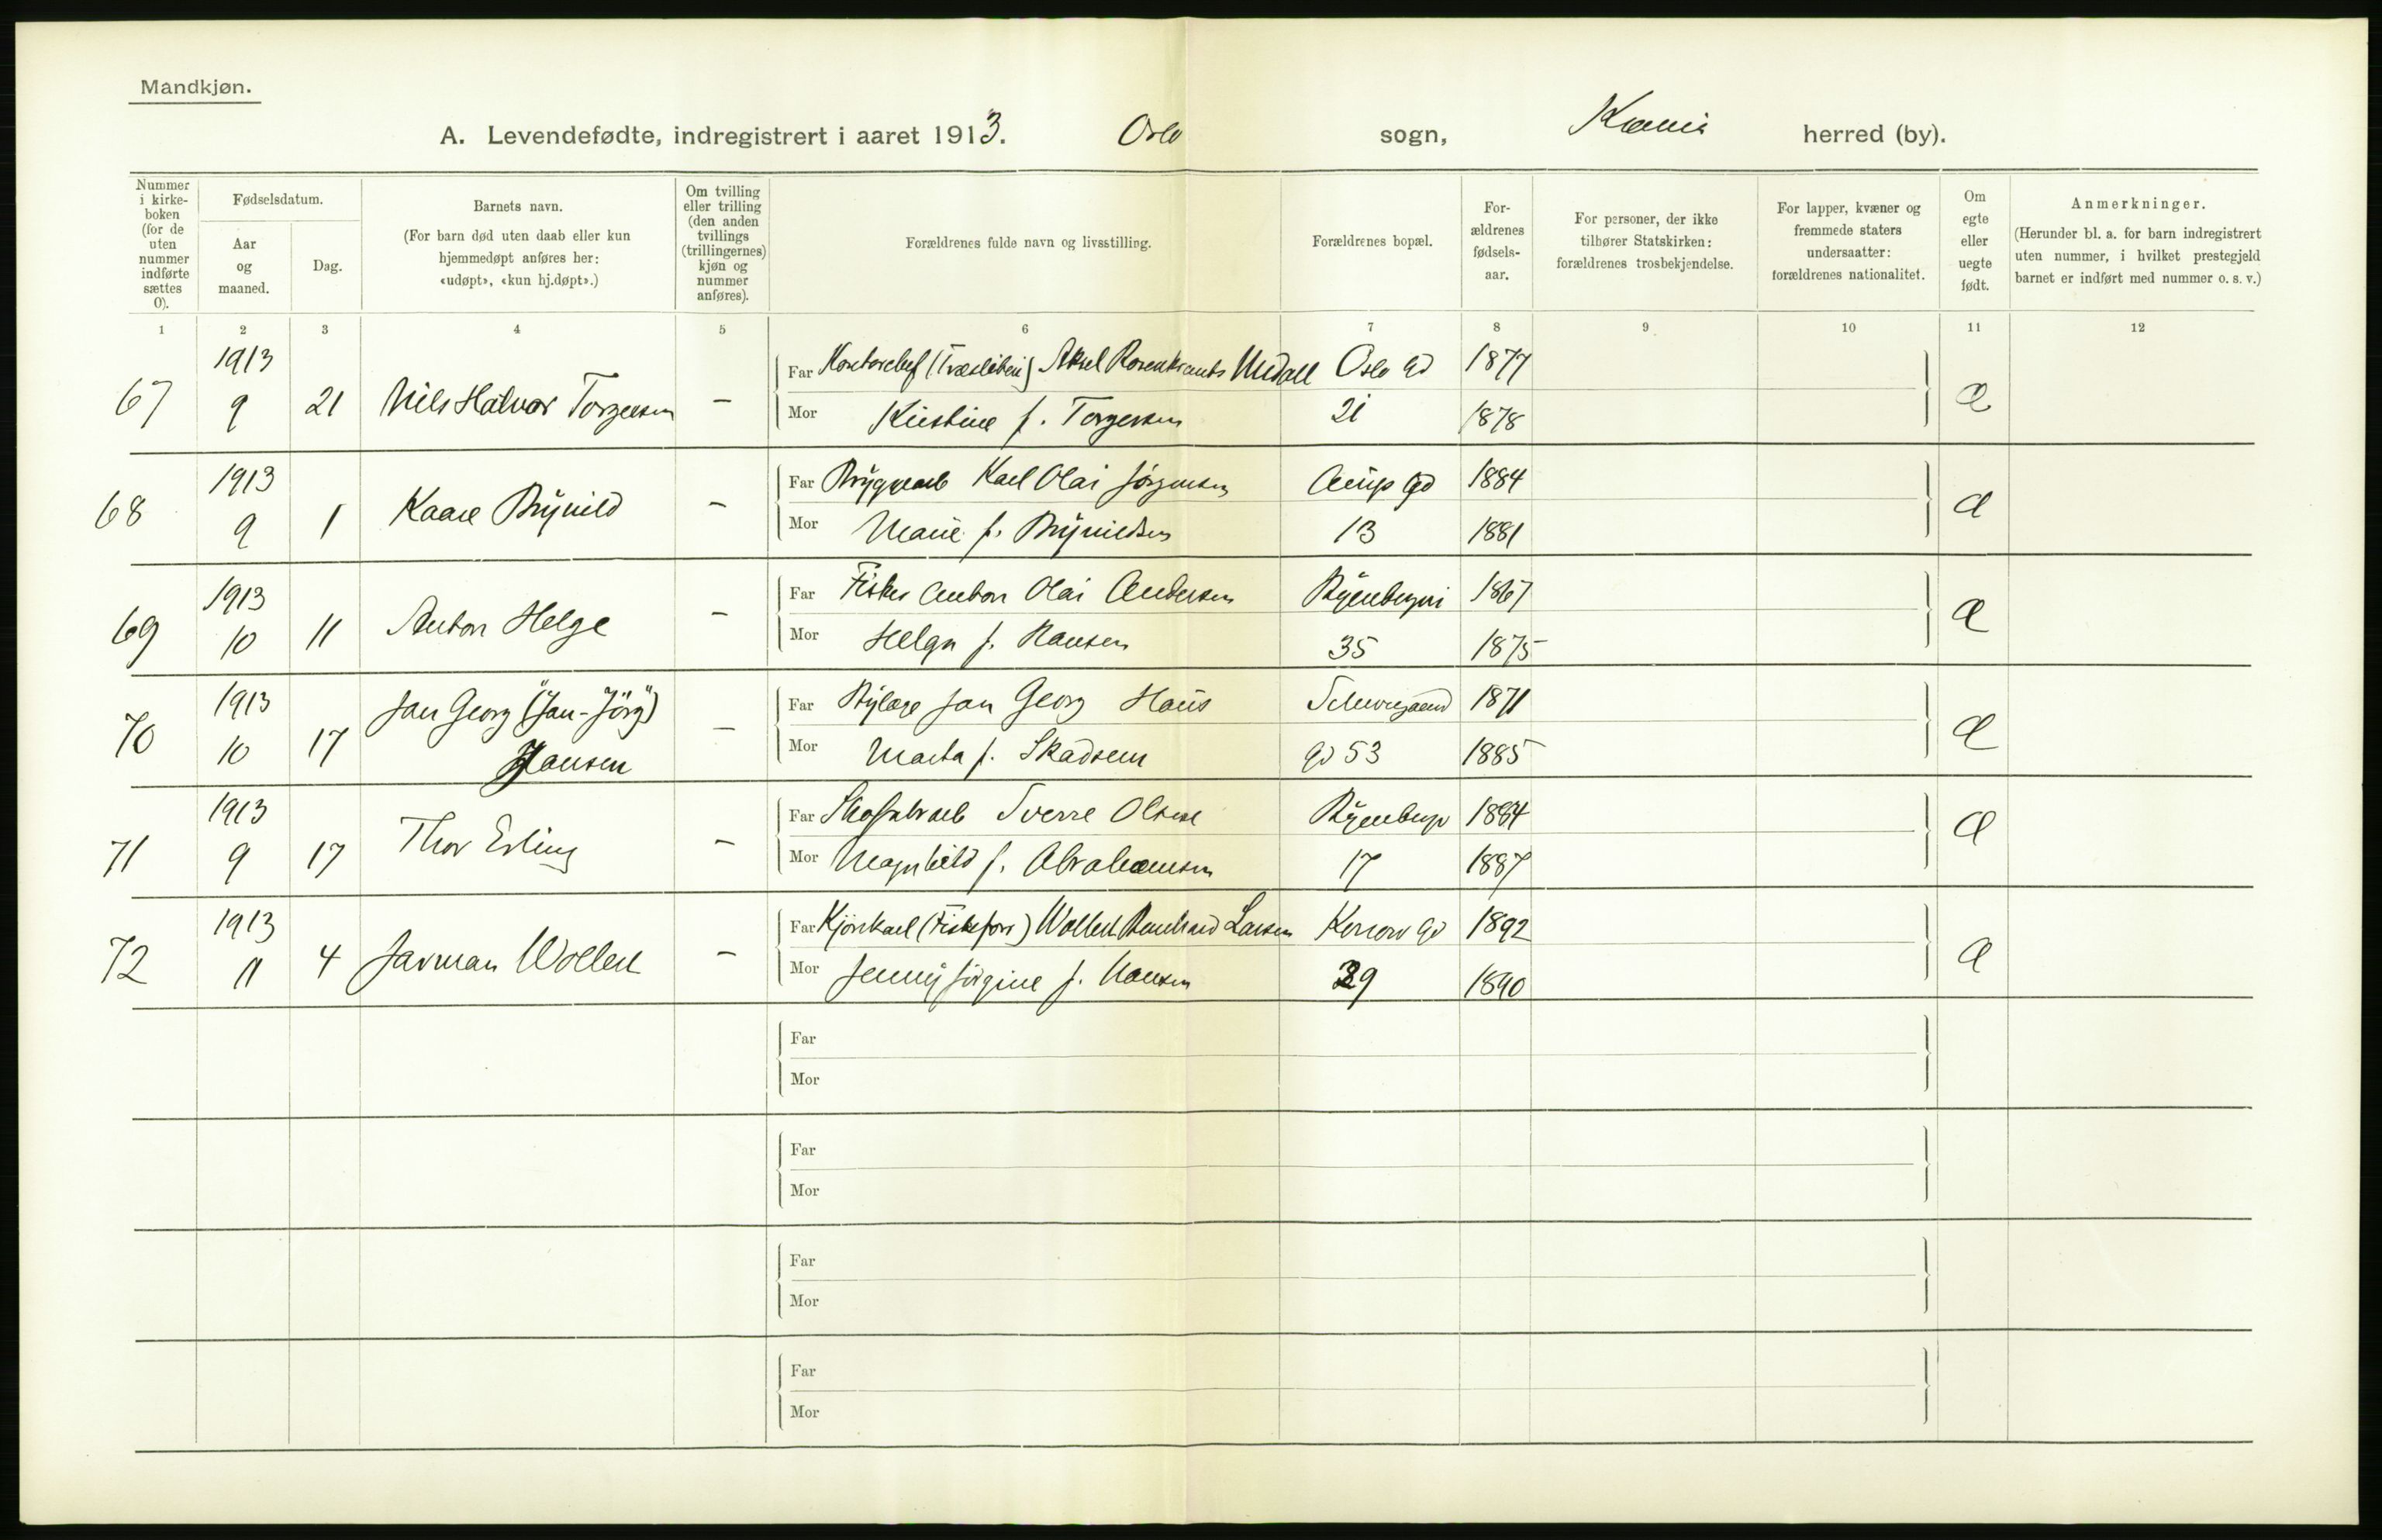 Mandkjøn.
A. Levendefødte, indregistrert i aaret 1913. Oslo sogn, Krania herred (by).
Nummer i kirkeboken (for de uten nummer indførte sættes 0).
Fødselsdatum.
Aar og maaned.
Dag.
Barnets navn.
(For barn død uten daab eller kun hjemmedøpt anføres her: «udøpt», «kun hj.døpt».)
Om tvilling eller trilling (den anden tvillings (trillingernes) kjøn og nummer anføres).
Forældrenes fulde navn og livsstilling.
Forældrenes bopæl.
Forældrenes fødselsaar.
For personer, der ikke tilhører Statskirken: forældrenes trosbekjendelse.
For lapper, kvæner og fremmede staters undersaatter: forældrenes nationalitet.
Om egte eller uegte født.
Anmerkninger.
(Herunder bl. a. for barn indregistrert uten nummer, i hvilket prestegjeld barnet er indført med nummer o. s. v.)
1 2 3 4 5 6 7 8 9 10 11 12
67 1913 9 21 Nils Halvor Torgersen –
Far Kontorchef Aksel Rosenkrants Oslo gd 1877
Mor Kristine f. Torgersen 21 1878
68 1913 9 1 Kaare Brynild –
Far Bryggearb Karl Olai Jørgensen gd 1884
Mor Marie f. Brynildsen 13 1881
69 1913 10 11 Anton Helge –
Far Fisker Anton Olai Andersen 1867
Mor Helga f. Hansen 35 1875
70 1913 10 17 Jan Georg ("Jan-Jörg") Hansen –
Far Jan Georg 1871
Mor Marta f. Skadsem gd 53 1885
71 1913 9 17 Thor Erling –
Far Skofabrarb Sverre Olsen 1884
Mor Magnhild f. Abrahamsen 17 1887
72 1913 11 4 Jarman Wollert –
Far Kjørekarl Wollert Larsen gd 1892
Mor Jenny Jørgine f. Hansen 39 1890
Far
Mor
Far
Mor
Far
Mor
Far
Mor